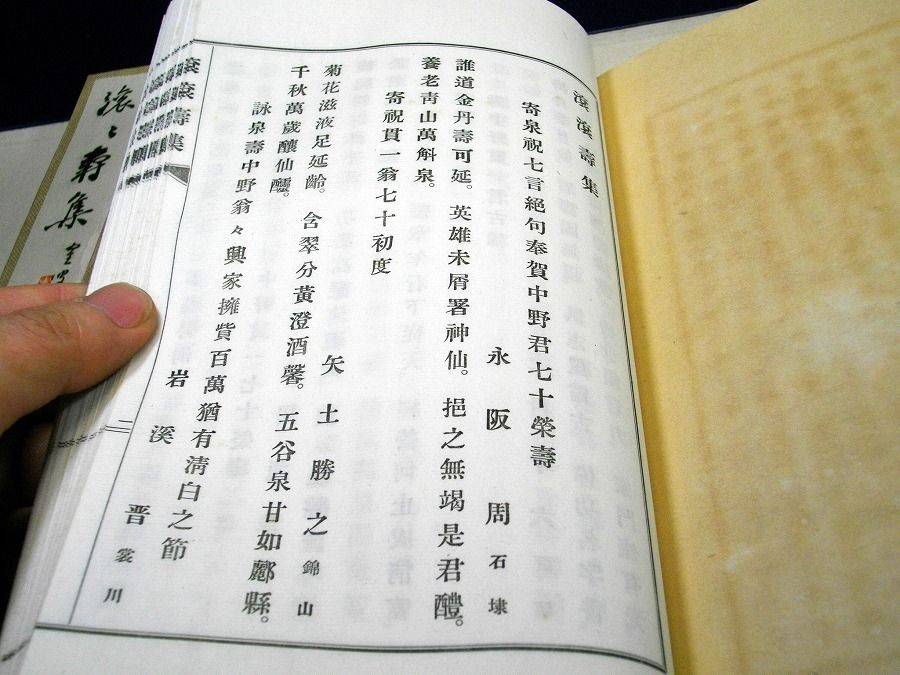 滾滾壽集
寄泉祝七言絕句奉賀中野君七十榮壽
永阪周石埭
誰道金丹壽可延。英雄未屑署神仙。挹之無竭是君醴。
養老靑山萬斛泉。
寄祝貫一翁七十初度
矢土勝之錦山
菊花滋液足延齡。含翠分黃澄酒馨。五谷泉甘如酈縣。
千秋萬歲釀仙醽。
詠泉壽中野翁々興家擁貲百萬猶有淸白之節
岩溪晋裳川
滾滾壽集
二
滾〻壽集